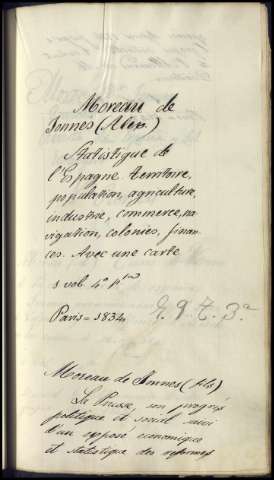 Moreau de
Jonnes (Alex.)
Statistique de
l'Espagne territoire,
population, agriculture,
industrie, commerce, na
vigation, colonies, finan
ces. Avec une carte
1 vol 4º
Paris = 1834
E. 9. T. 3ª
Moreau de Jonnes (fils)
La Prusse, son progrés
politique et social suivi
d'un exposé économique
et statistique des réformes